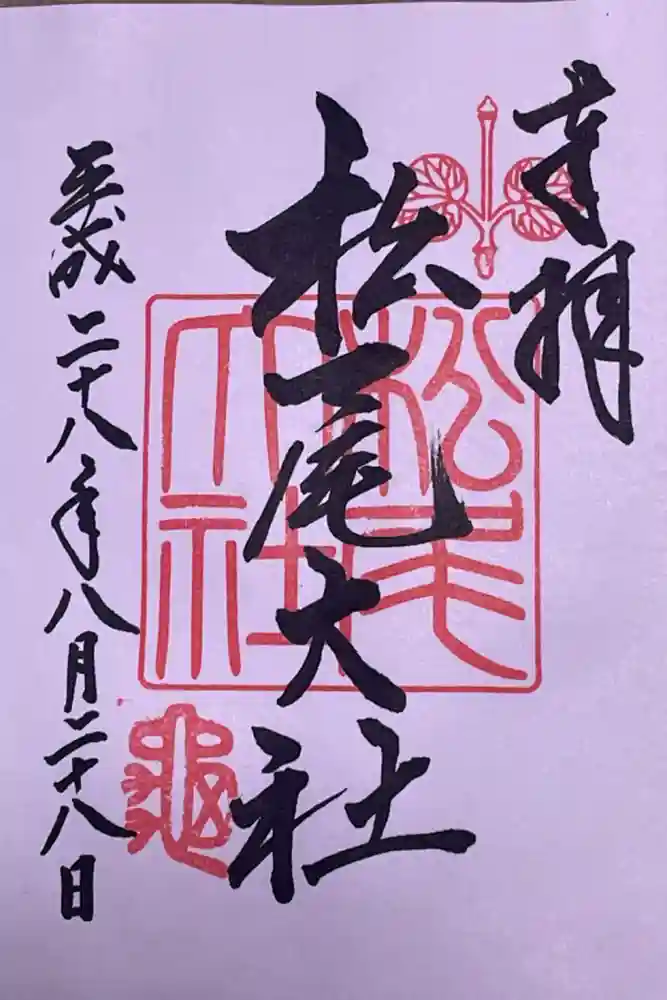 奉拝
松尾大社
平成二十八年八月二十八日
松尾大社
亀